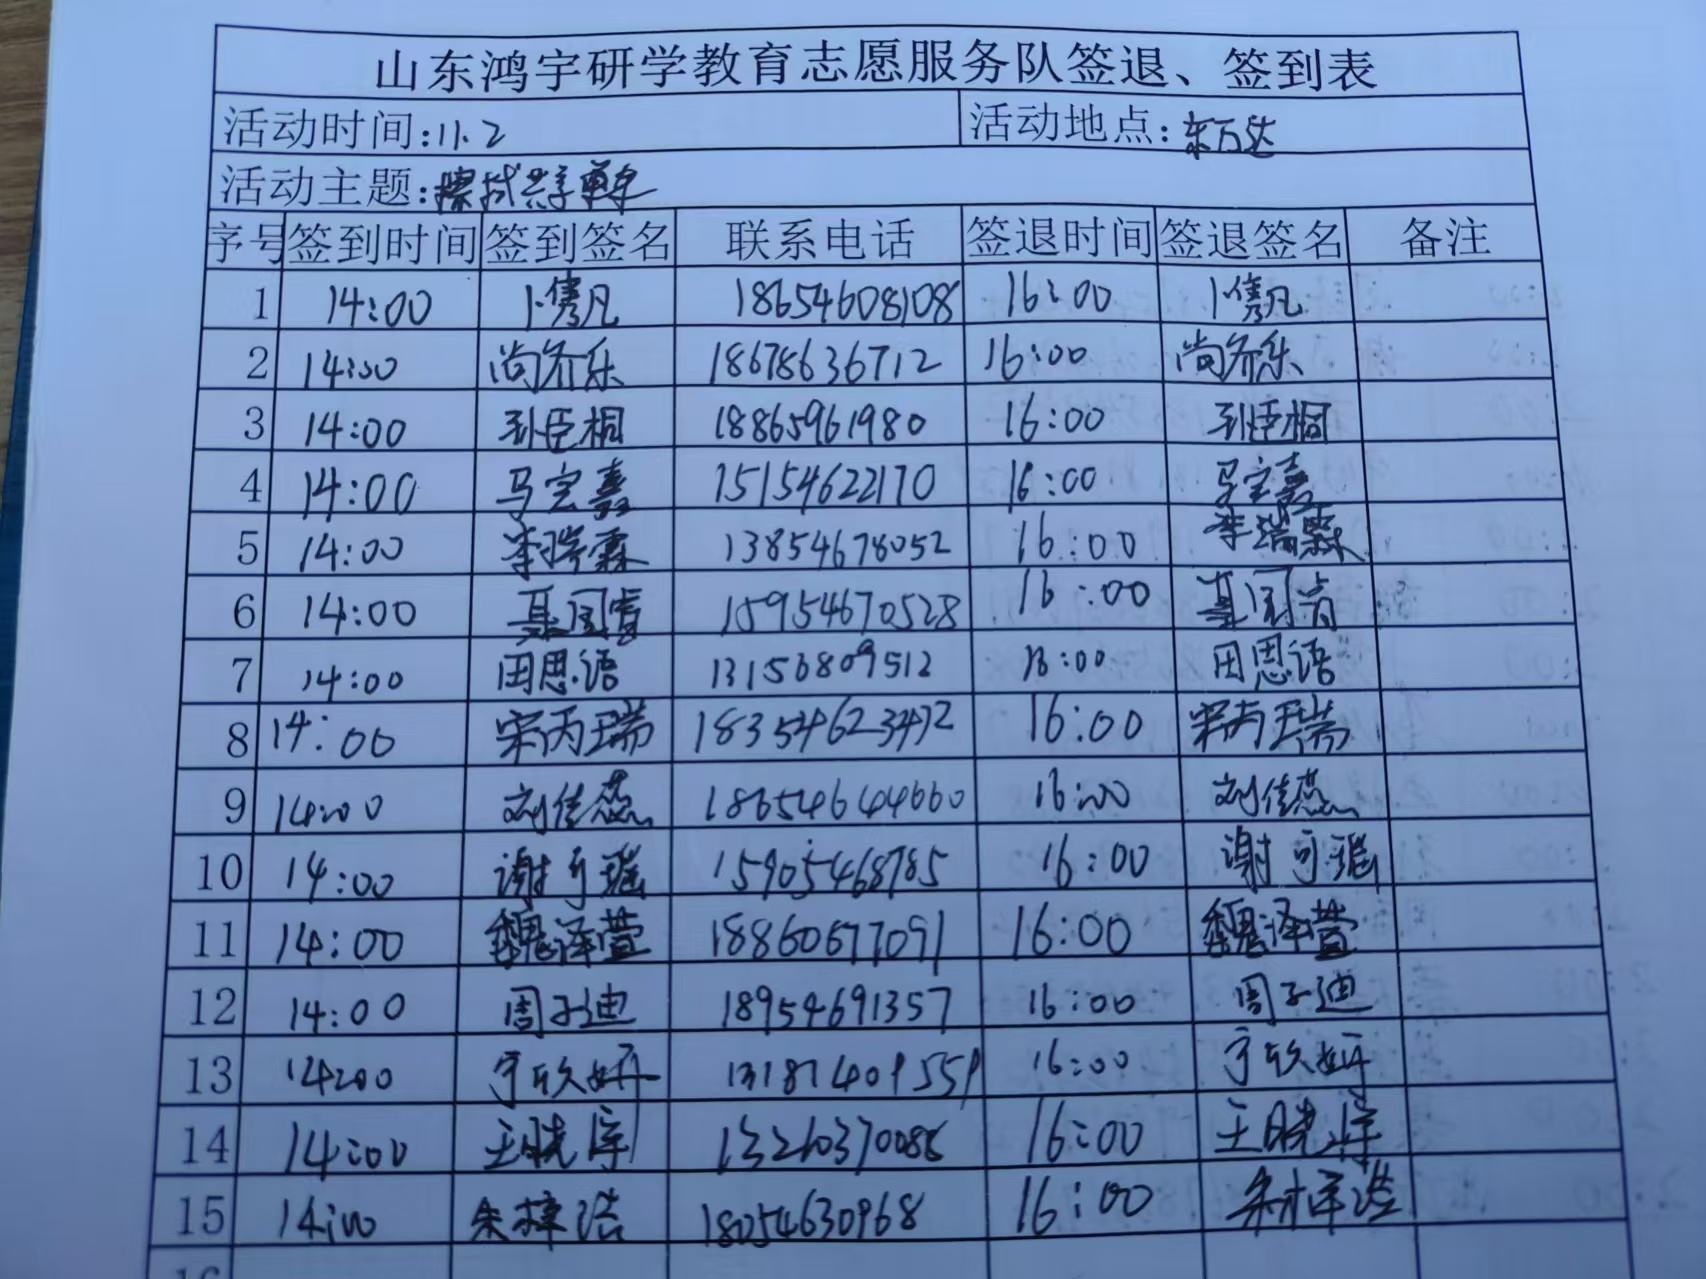 山东鸿宇研学教育志愿服务队签退、签到表
活动时间:11.2 活动地点:东万达
活动主题:擦拭共享单车
序号 签到时间 签到签名 联系电话 签退时间 签退签名 备注
1 14:00 卜隽凡 18654608108 16:00 卜隽凡
2 14:00 尚乔乐 18678636712 16:00 尚乔乐
3 14:00 孙臣桐 18865961980 16:00 孙臣桐
4 14:00 马宝嘉 15154622170 16:00 马宝嘉
5 14:00 李瑞霖 13854678052 16:00 李瑞霖
6 14:00 15954670528 16:00
7 14:00 田思语 13156809512 16:00 田思语
8 14:00 宋丙瑞 18354623472 16:00 宋丙瑞
9 14:00 刘佳蕊 18654644660 16:00 刘佳蕊
10 14:00 谢可瑶 15905468785 16:00 谢可瑶
11 14:00 魏泽萱 18860677091 16:00 魏泽萱
12 14:00 周子迪 18954691357 16:00 周子迪
13 14:00 于欣妍 13187409559 16:00 于欣妍
14 14:00 王晓宇 16:00
15 14:00 朱梓浩 18054630968 16:00 朱梓浩